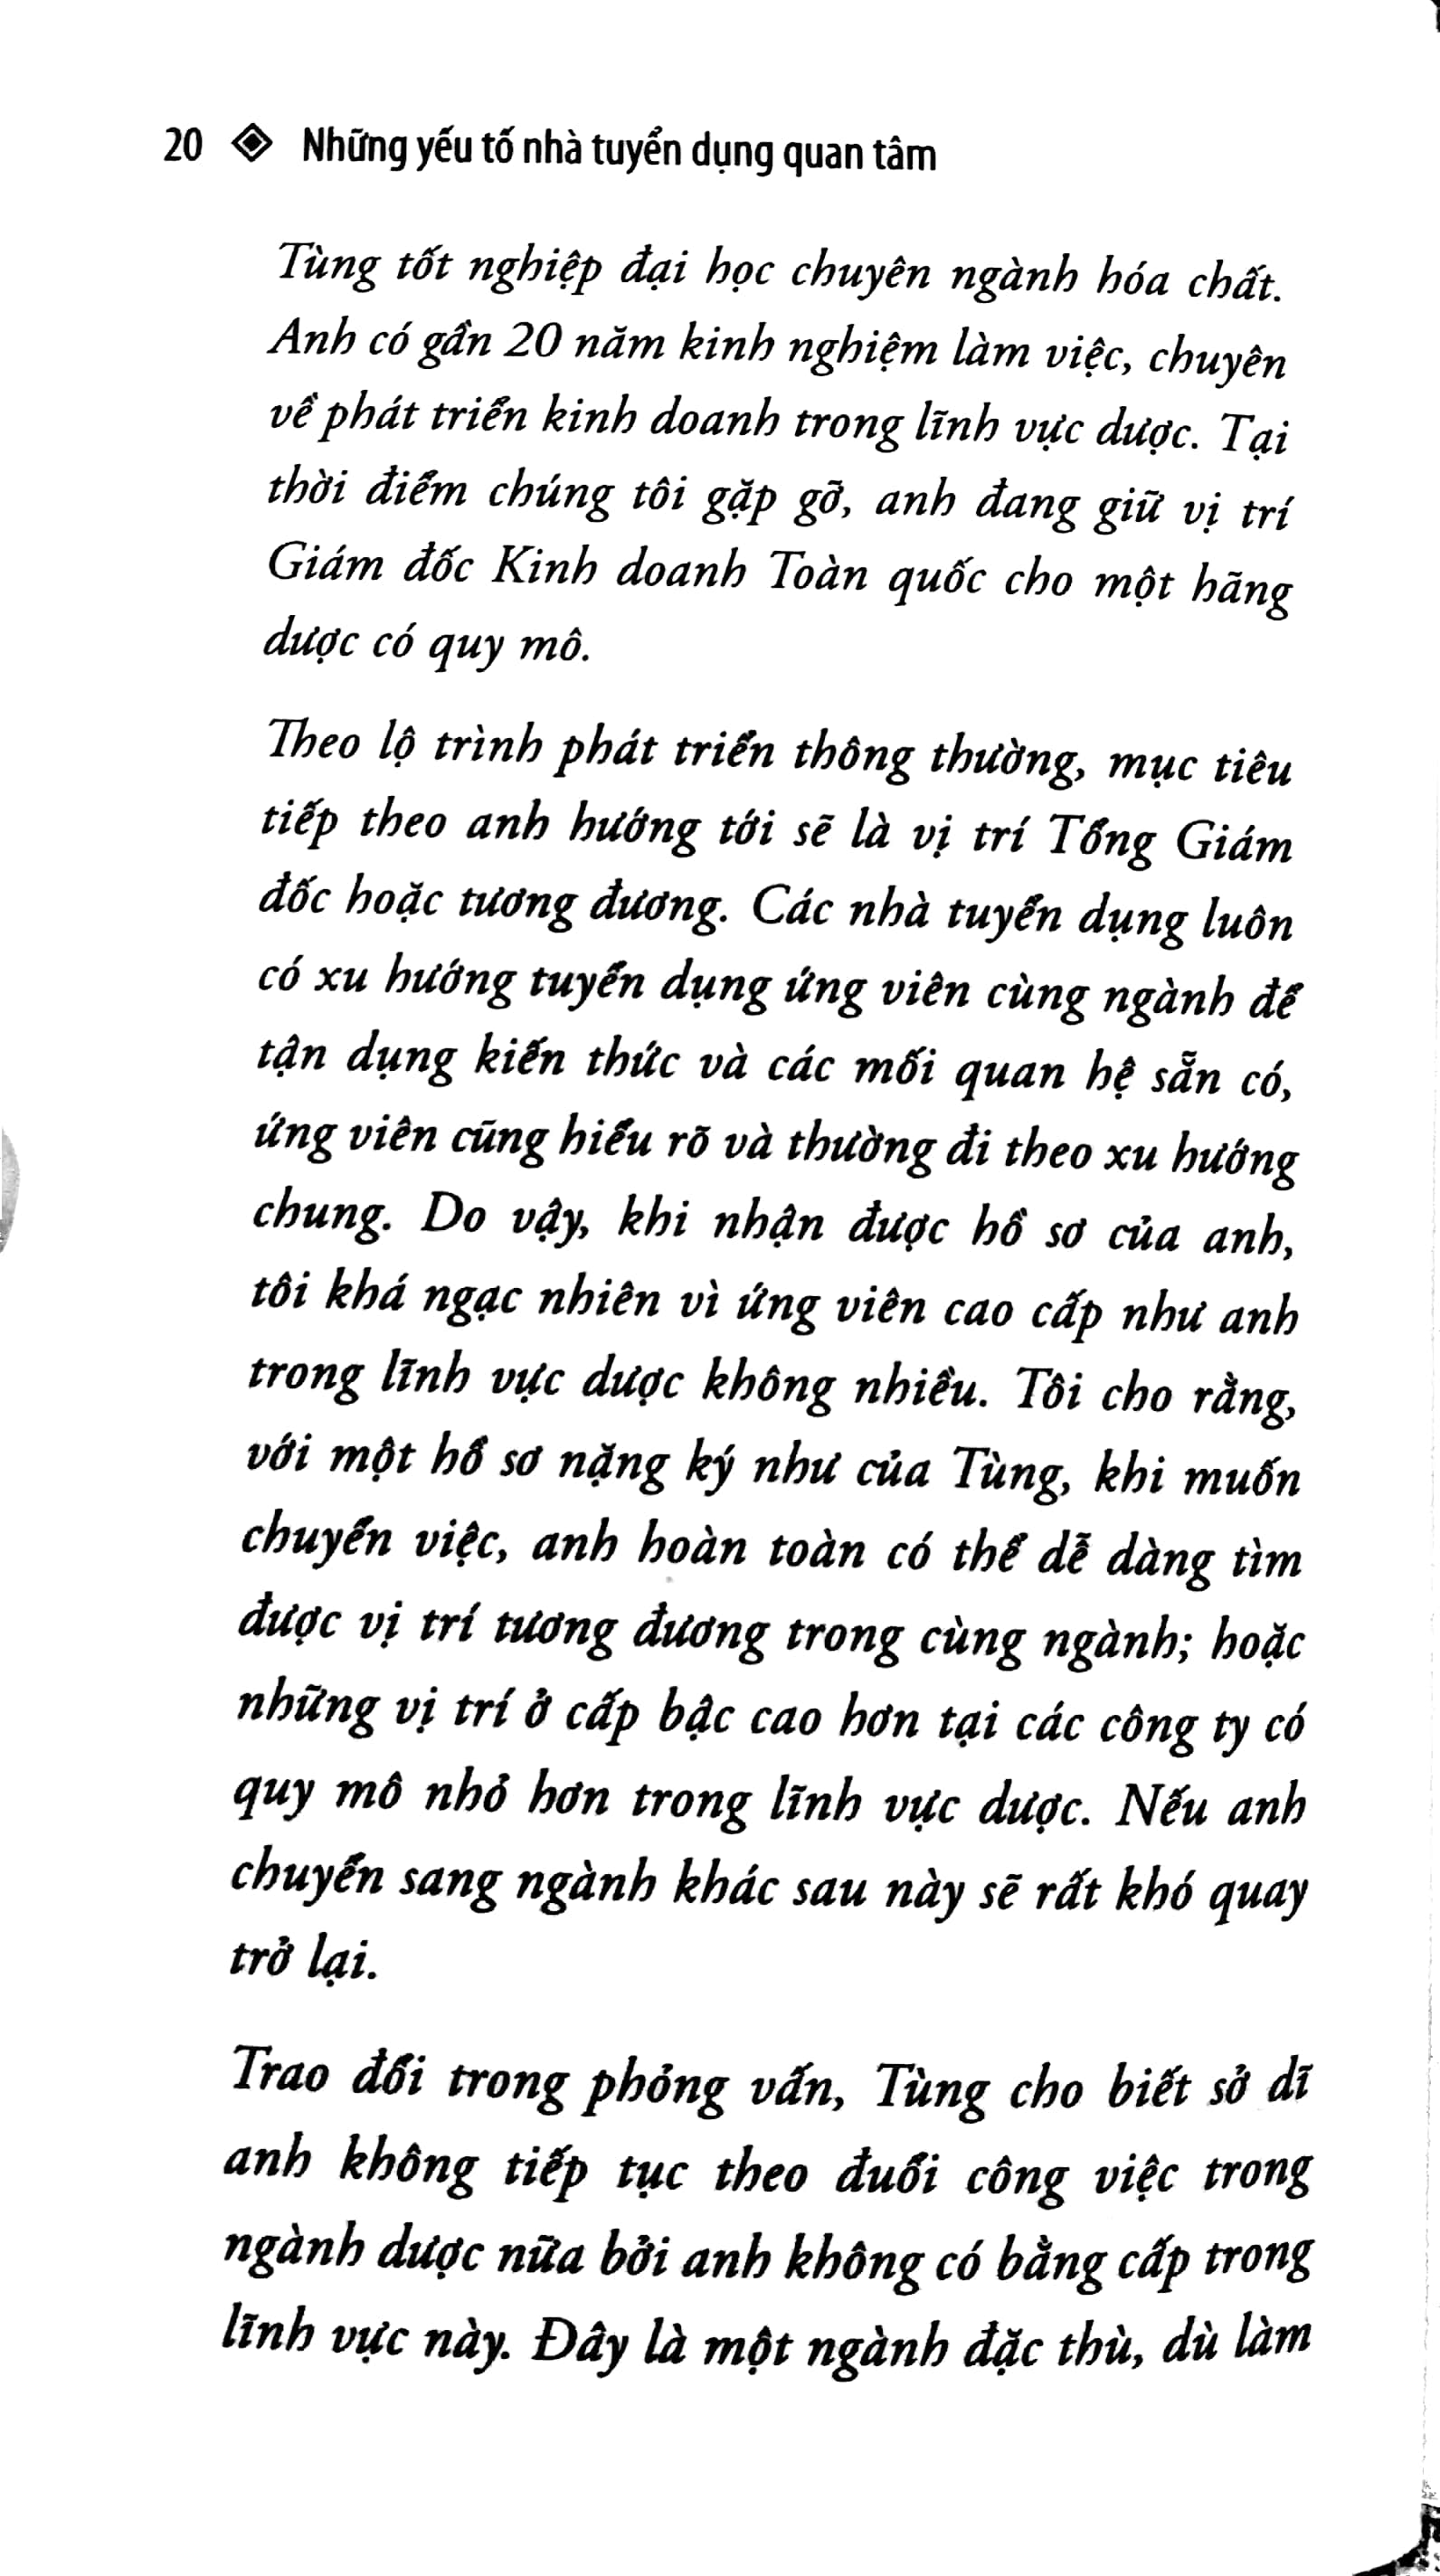 20 ◈ Những yếu tố nhà tuyển dụng quan tâm
Tùng tốt nghiệp đại học chuyên ngành hóa chất.
Anh có gần 20 năm kinh nghiệm làm việc, chuyên
về phát triển kinh doanh trong lĩnh vực dược. Tại
thời điểm chúng tôi gặp gỡ, anh đang giữ vị trí
Giám đốc Kinh doanh Toàn quốc cho một hãng
dược có quy mô.
Theo lộ trình phát triển thông thường, mục tiêu
tiếp theo anh hướng tới sẽ là vị trí Tổng Giám
đốc hoặc tương đương. Các nhà tuyển dụng luôn
có xu hướng tuyển dụng ứng viên cùng ngành để
tận dụng kiến thức và các mối quan hệ sẵn có,
ứng viên cũng hiểu rõ và thường đi theo xu hướng
chung. Do vậy, khi nhận được hồ sơ của anh,
tôi khá ngạc nhiên vì ứng viên cao cấp như anh
trong lĩnh vực dược không nhiều. Tôi cho rằng,
với một hồ sơ nặng ký như của Tùng, khi muốn
chuyển việc, anh hoàn toàn có thể dễ dàng tìm
được vị trí tương đương trong cùng ngành; hoặc
những vị trí ở cấp bậc cao hơn tại các công ty có
quy mô nhỏ hơn trong lĩnh vực dược. Nếu anh
chuyển sang ngành khác sau này sẽ rất khó quay
trở lại.
Trao đổi trong phỏng vấn, Tùng cho biết sở dĩ
anh không tiếp tục theo đuổi công việc trong
ngành dược nữa bởi anh không có bằng cấp trong
lĩnh vực này. Đây là một ngành đặc thù, dù làm